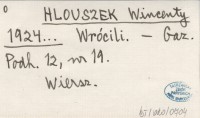 0
HŁOUSZEK Wincenty
1924... Wrócili. — Gaz.
Podh. 12, nr 19.
Wiersz.